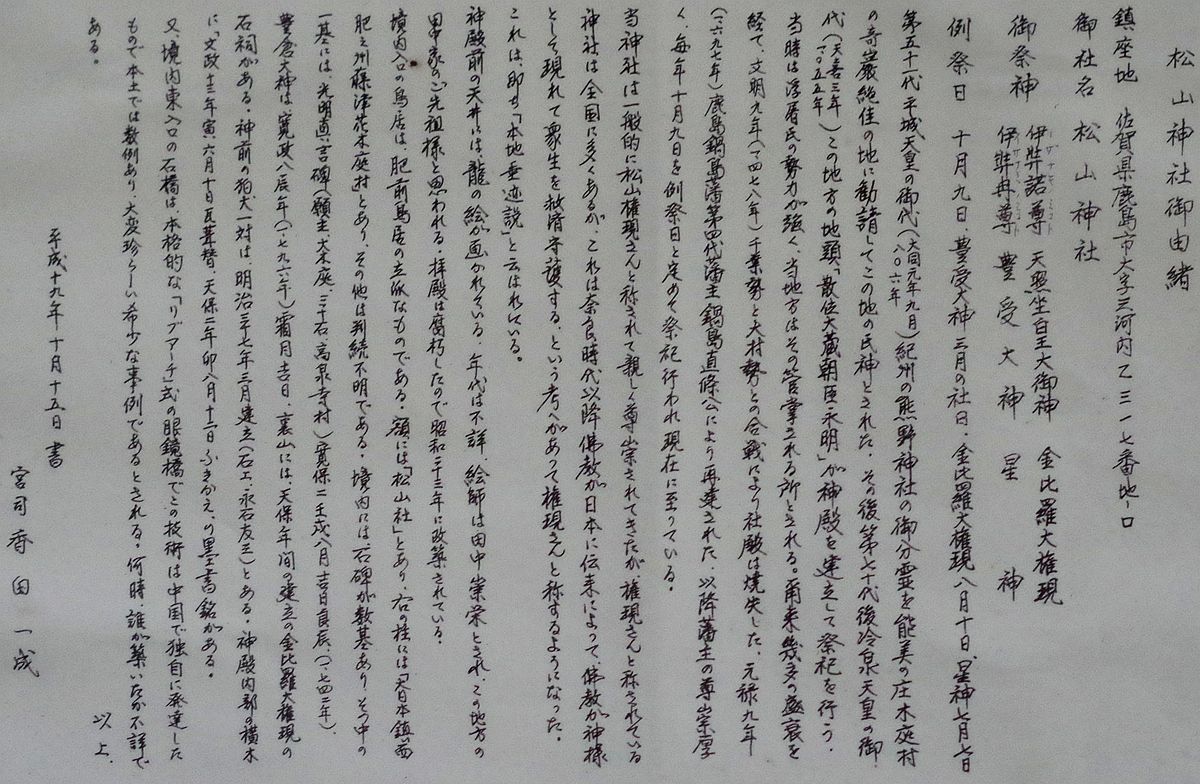 松山神社御由緒
鎮座地 佐賀県鹿島市大字三河内乙二三一七番地一口
御社名 松山神社
御祭神 伊弉諾尊 天照坐皇大御神 金比羅大権現
伊弉冉尊 豊受大神 星神
例祭日 十月九日、豊受大神三月の社日、金比羅大権現八月十日、星神七月七日
第五十一代平城天皇の御代(大同元年九月)(八〇六年)紀州の熊野神社の御分霊を能美の庄木庭村
の奇巌絶佳の地に勧請してこの地の民神とされた。その後第七十代後冷泉天皇の御
代(天喜三年)(一〇五五年)この地方の地頭「散位大蔵朝臣永明」が神殿を建立して祭祀を行う。
当時は浮屠氏の勢力が強く、当地方はその管掌される所とされる。爾来幾多の盛衰を
経て、文明九年(一四七八年)千葉勢と大村勢との合戦により社殿は焼失した。元禄九年
(一六九七年)鹿島鍋島藩第四代藩主鍋島直條公により再建された。以降藩主の尊崇厚
く、毎年十月九日を例祭日と定めて祭祀行われ現在に至っている。
当神社は一般的に松山権現さんと称されて親しく尊崇されてきたが、権現さんと称されている
神社は全国に多くあるが、これは奈良時代以降佛教が日本に伝来によって、佛教が神様
として現れて衆生を救済守護する、という考へがあって権現さんと称するようになった。
これは、即ち「本地垂迹説」と云はれている。
神殿前の天井には龍の絵が画かれている。年代は不詳、絵師は田中崇栄とされ、この地方の
田中家のご先祖様と思われる。拝殿は腐朽したので昭和二十三年に改築されている。
境内入口の鳥居は、肥前鳥居の立派なものである。額には「松山社」とあり、右の柱には「大日本鎮西
肥之州藤津花木庭村とあり、その他は判続不明である。境内には石碑が数基あり、その中の
一基には、光明真言碑(願主、大木庭、三千石高泉寺村)寛保二壬戌八月吉日良辰、(一七四二年)。
豊倉大神は寛政八辰年(一七九六年)霜月吉日、裏山には、天保年間の建立の金比羅大権現の
石祠がある。神前の狛犬一対は、明治三十七年三月建立(石工、永石友三)とある。神殿内部の横木
に「文政十三年寅六月十日瓦葺替、天保二年卯八月十二日ふきかえ」の墨書銘がある。
又、境内東入口の石橋は本格的な「リブアーチ」式の眼鏡橋でこの技術は中国で独自に発達した
もので本土では数例あり、大変珍らしい希少な事例であるとされる。何時、誰が築いたか不詳で
ある。 以上、
平成十九年十月十五日 書
宮司 香田一成